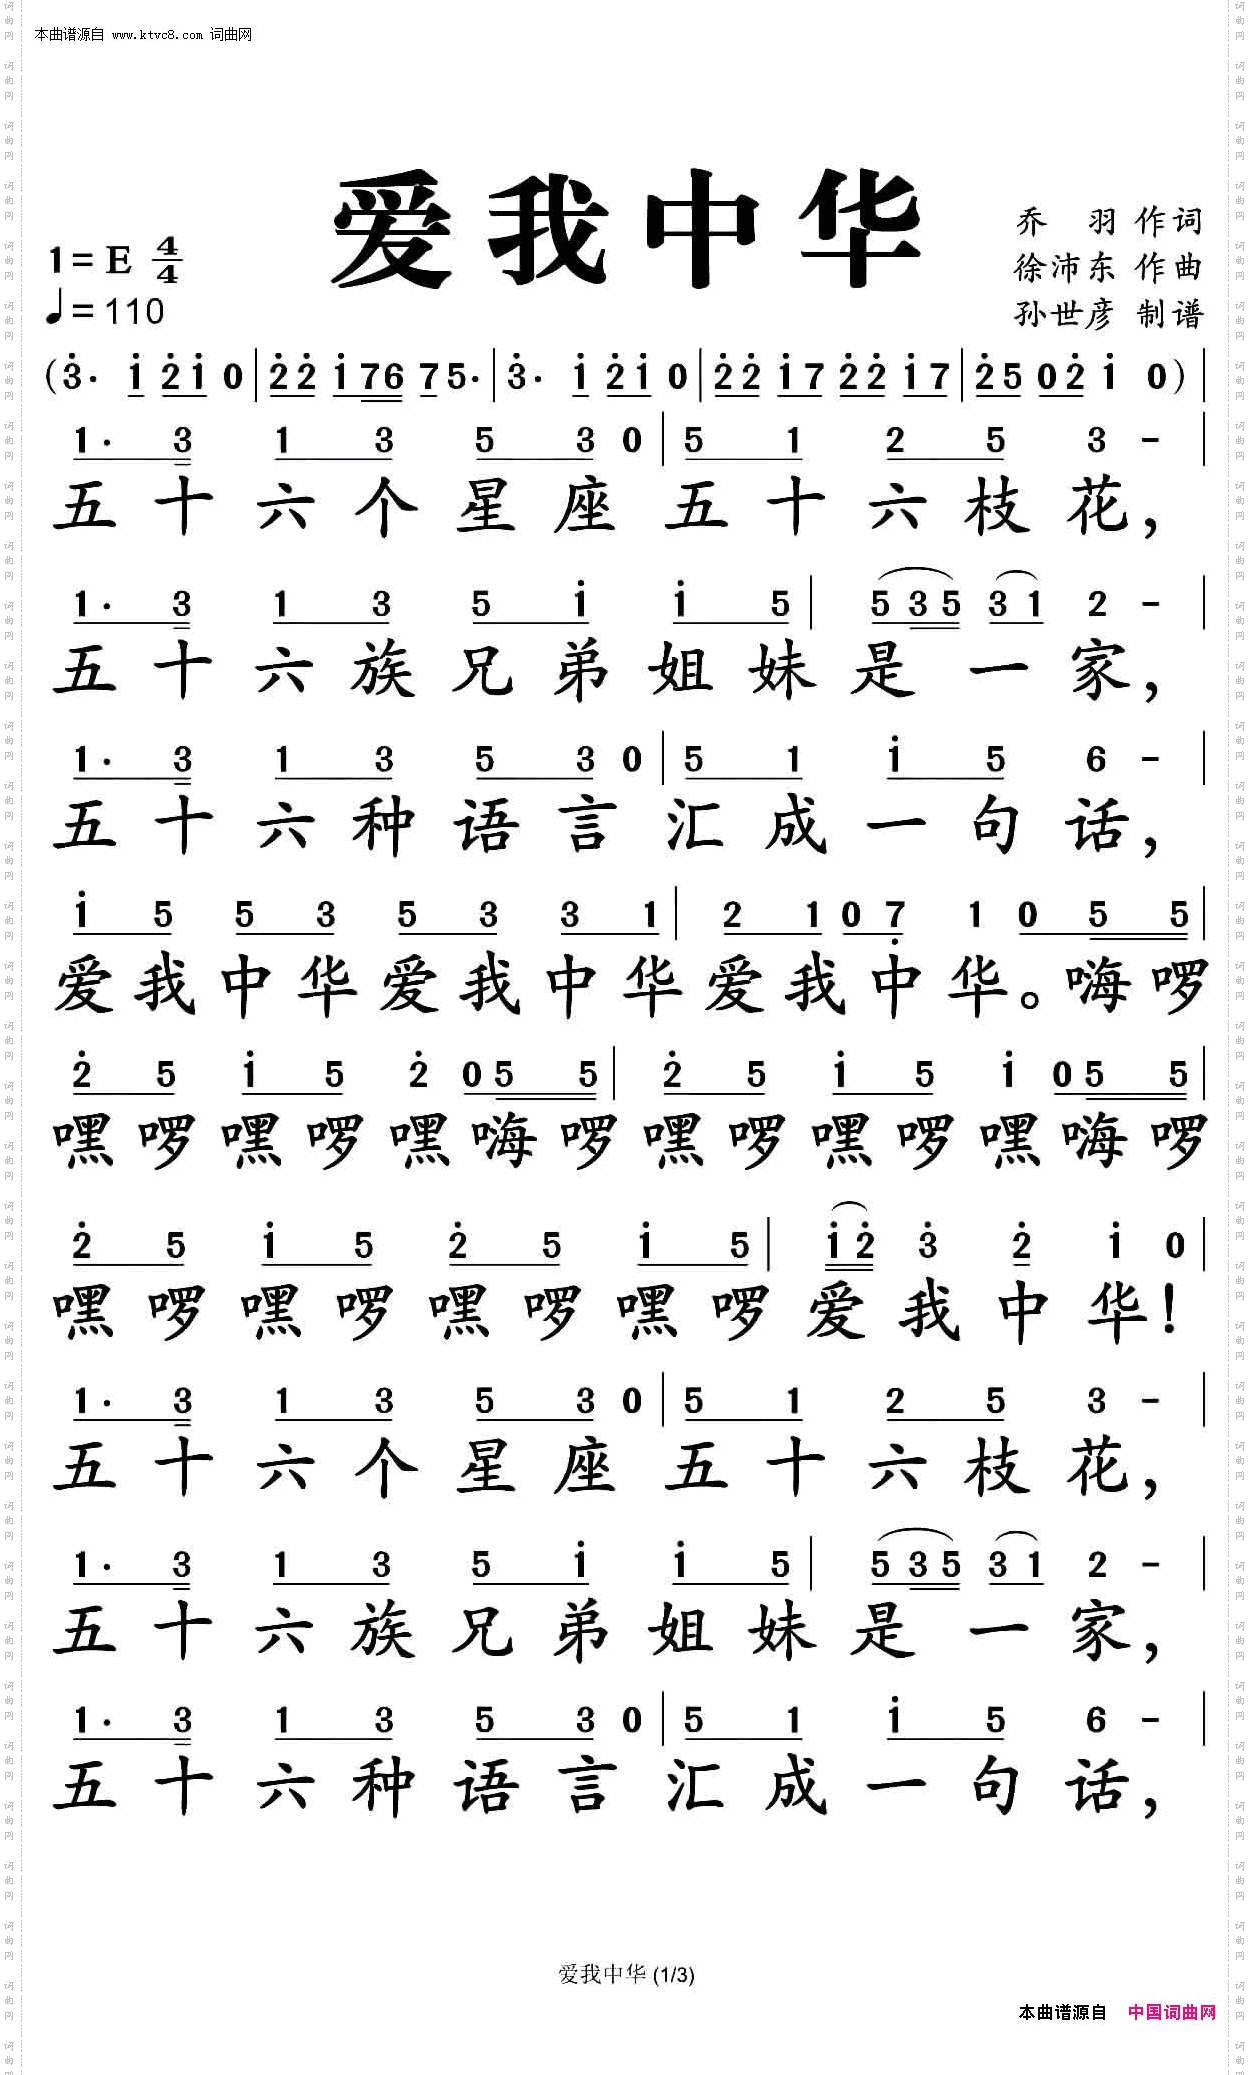 本曲谱源自 www.ktvc8.com 词曲网
爱我中华
乔 羽 作词
1=E 4/4
徐沛东 作曲
♩=110
孙世彦 制谱
(3̇· 1̇ 2̇1̇ 0 | 2̇2̇ 1̇76 7 5· | 3̇· 1̇ 2̇1̇ 0 | 2̇2̇ 1̇7 2̇2̇ 1̇7 | 2̇5 02̇ 1̇ 0) |
1· 3 1 3 5 3 0 | 5 1 2 5 3 - |
五十六个星座五十六枝花，
1· 3 1 3 5 1̇ 1̇ 5 | 5 3 5 3 1 2 - |
五十六族兄弟姐妹是一家，
1· 3 1 3 5 3 0 | 5 1 1̇ 5 6 - |
五十六种语言汇成一句话，
1̇ 5 5 3 5 3 3 1 | 2 1 0 7̣ 1 0 5 5 |
爱我中华爱我中华爱我中华。嗨啰
2̇ 5 1̇ 5 2̇ 0 5 5 | 2̇ 5 1̇ 5 1̇ 0 5 5 |
嘿啰嘿啰嘿嗨啰嘿啰嘿啰嘿嗨啰
2̇ 5 1̇ 5 2̇ 5 1̇ 5 | 1̇ 2̇ 3̇ 2̇ 1̇ 0 |
嘿啰嘿啰嘿啰嘿啰爱我中华！
1· 3 1 3 5 3 0 | 5 1 2 5 3 - |
五十六个星座五十六枝花，
1· 3 1 3 5 1̇ 1̇ 5 | 5 3 5 3 1 2 - |
五十六族兄弟姐妹是一家，
1· 3 1 3 5 3 0 | 5 1 1̇ 5 6 - |
五十六种语言汇成一句话，
爱我中华 (1/3)
本曲谱源自 中国词曲网